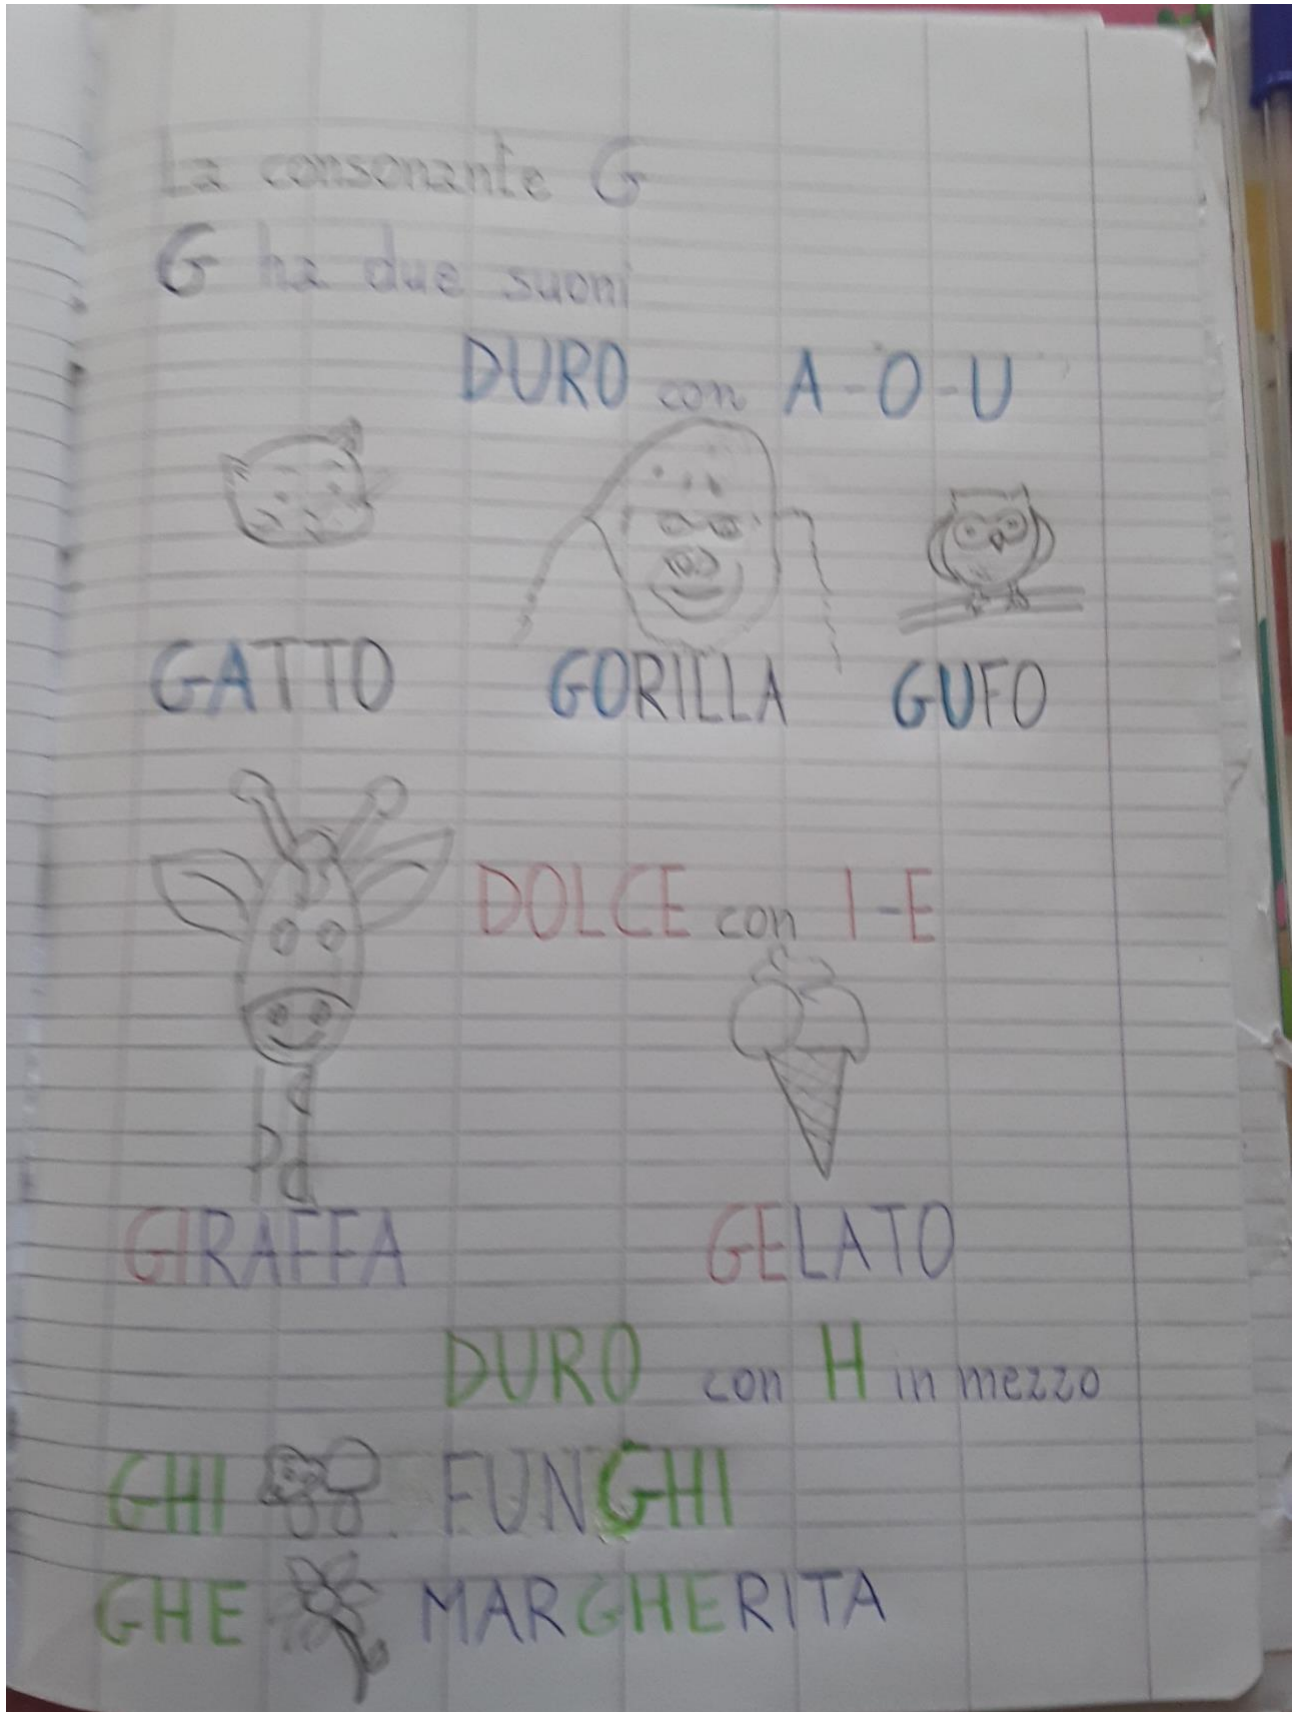 La consonante G
G ha due suoni
DURO con A-O-U
GATTO GORILLA GUFO
DOLCE con I-E
GIRAFFA GELATO
DURO con H in mezzo
GHI FUNGHI
GHE MARGHERITA